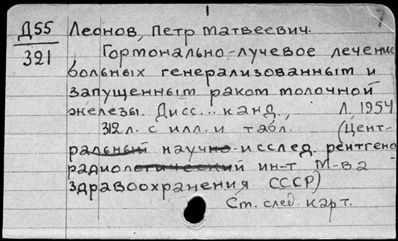 1
Д55 Леонов, Петр Матвеевич.
321 Гормонально-лучевое лечение
больных генерализованным и
запущенным раком молочной
железы. Дисс... канд., Л, 1954
312 л. с илл. и табл. (Цент-
ральный научно-исслед. рентгено
радиологический ин-т М-ва
здравоохранения СССР)
См. след. карт.